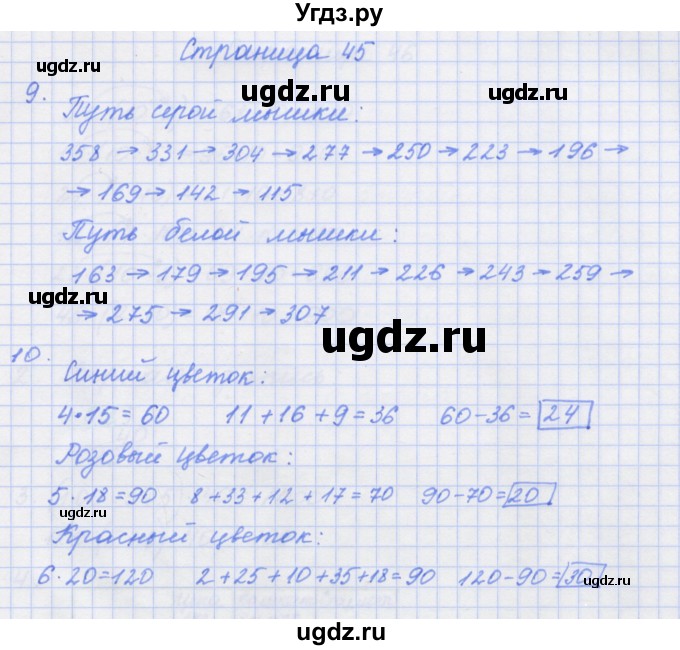 Угдз.ру
Страница 45
ugdz.ru
ugdz.ru
ugdz.ru
9.
Путь серой мышки:
358 → 331 → 304 → 277 → 250 → 223 → 196 →
ugdz.ru
ugdz.ru
→ 169 → 142 → 115
Путь белой мышки:
163 → 179 → 195 → 211 → 226 → 243 → 259 →
ugdz.ru
→ 275 → 291 → 307
ugdz.ru
10.
Синий цветок:
ugdz.ru
4·15=60 11+16+9=36 60-36=24.
Розовый цветок:
ugdz.ru
5·18=90 8+33+12+17=70 90-70=20.
ugdz.ru
Красный цветок:
6·20=120 2+25+10+35+18=90 120-90=30
ugdz.ru
ugdz.ru